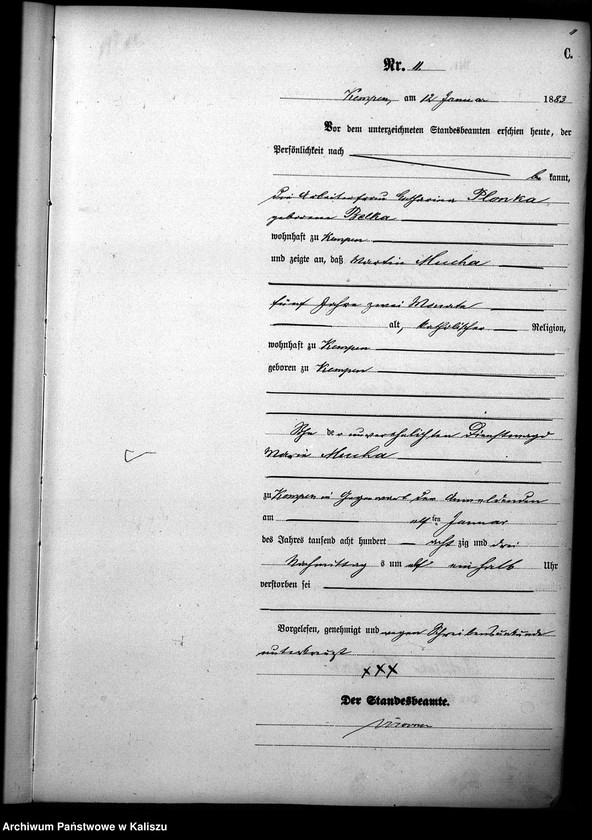 C.
Nr. 11.
Kempen, am 12 Januar 1883
Vor dem unterzeichneten Standesbeamten erschien heute, der
Persönlichkeit nach
be kannt,
die Arbeiterfrau Catharina Plonka
geborene Belka
wohnhaft zu Kempen
und zeigte an, daß Martin Mucha
fünf Jahre zwei Monate
alt, katholischer Religion,
wohnhaft zu Kempen
geboren zu Kempen
der unverehelichten Dienstmagd
Marie Mucha
zu Kempen in Gegenwart der Anmeldenden
am elften Januar
des Jahres tausend acht hundert acht zig und drei
Nachmittag s um elf einhalb Uhr
verstorben sei
Vorgelesen, genehmigt und wegen Schreibensunkunde
unterkreuzt
XXX
Der Standesbeamte.
Archiwum Państwowe w Kaliszu